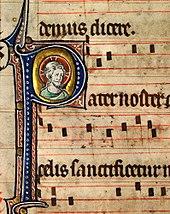 demus dicere.
Pater noster q
celis sanctificetur n